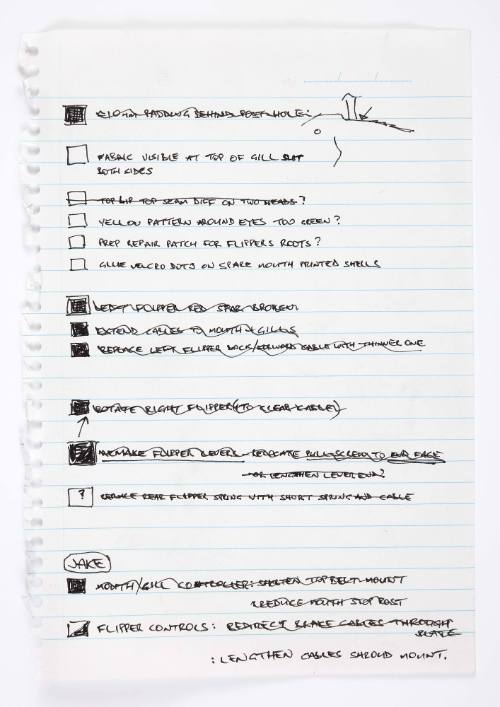 PADDING BEHIND POST HOLE:
FABRIC VISIBLE AT TOP OF GILL SLIT
BOTH SIDES
TOP LIP TOP SEAM DIFF ON TWO HEADS?
YELLOW PATTERN AROUND EYES TOO GREEN?
PREP REPAIR PATCH FOR FLIPPERS ROOTS?
GLUE VELCRO DOTS ON SPARE MOUTH PRINTED SHELLS
LEFT FLIPPER RED SPAR BROKEN
EXTEND CABLES TO MOUTH & GILLS
REPLACE LEFT FLIPPER BACK/FORWARD CABLE WITH THINNER ONE
ROTATE RIGHT FLIPPER (TO CLEAR CABLE)
FLIPPER LEVERS - RELOCATE TO END FACE
OR LENGTHEN LEVER END?
? REPLACE REAR FLIPPER SPRING WITH SHORT SPRING AND CABLE
JAKE
MOUTH/GILL CONTROLLER: SHORTEN TOP BELT MOUNT
REDUCE MOUTH STOP POST
FLIPPER CONTROLS: REDIRECT BRAKE CABLES THROUGH
PLATE
: LENGTHEN CABLES SHROUD MOUNT.